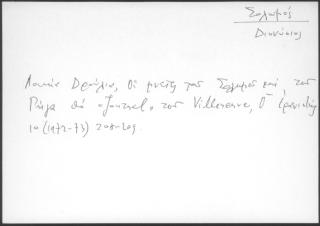 Σολωμός
Διονύσιος
Λουκία Δρούλια, Οι μνείες του Σολωμού και του
Ρήγα στο «Journal» του Villeneuve, Ο Ερανιστής
10 (1972-73) 208-209.